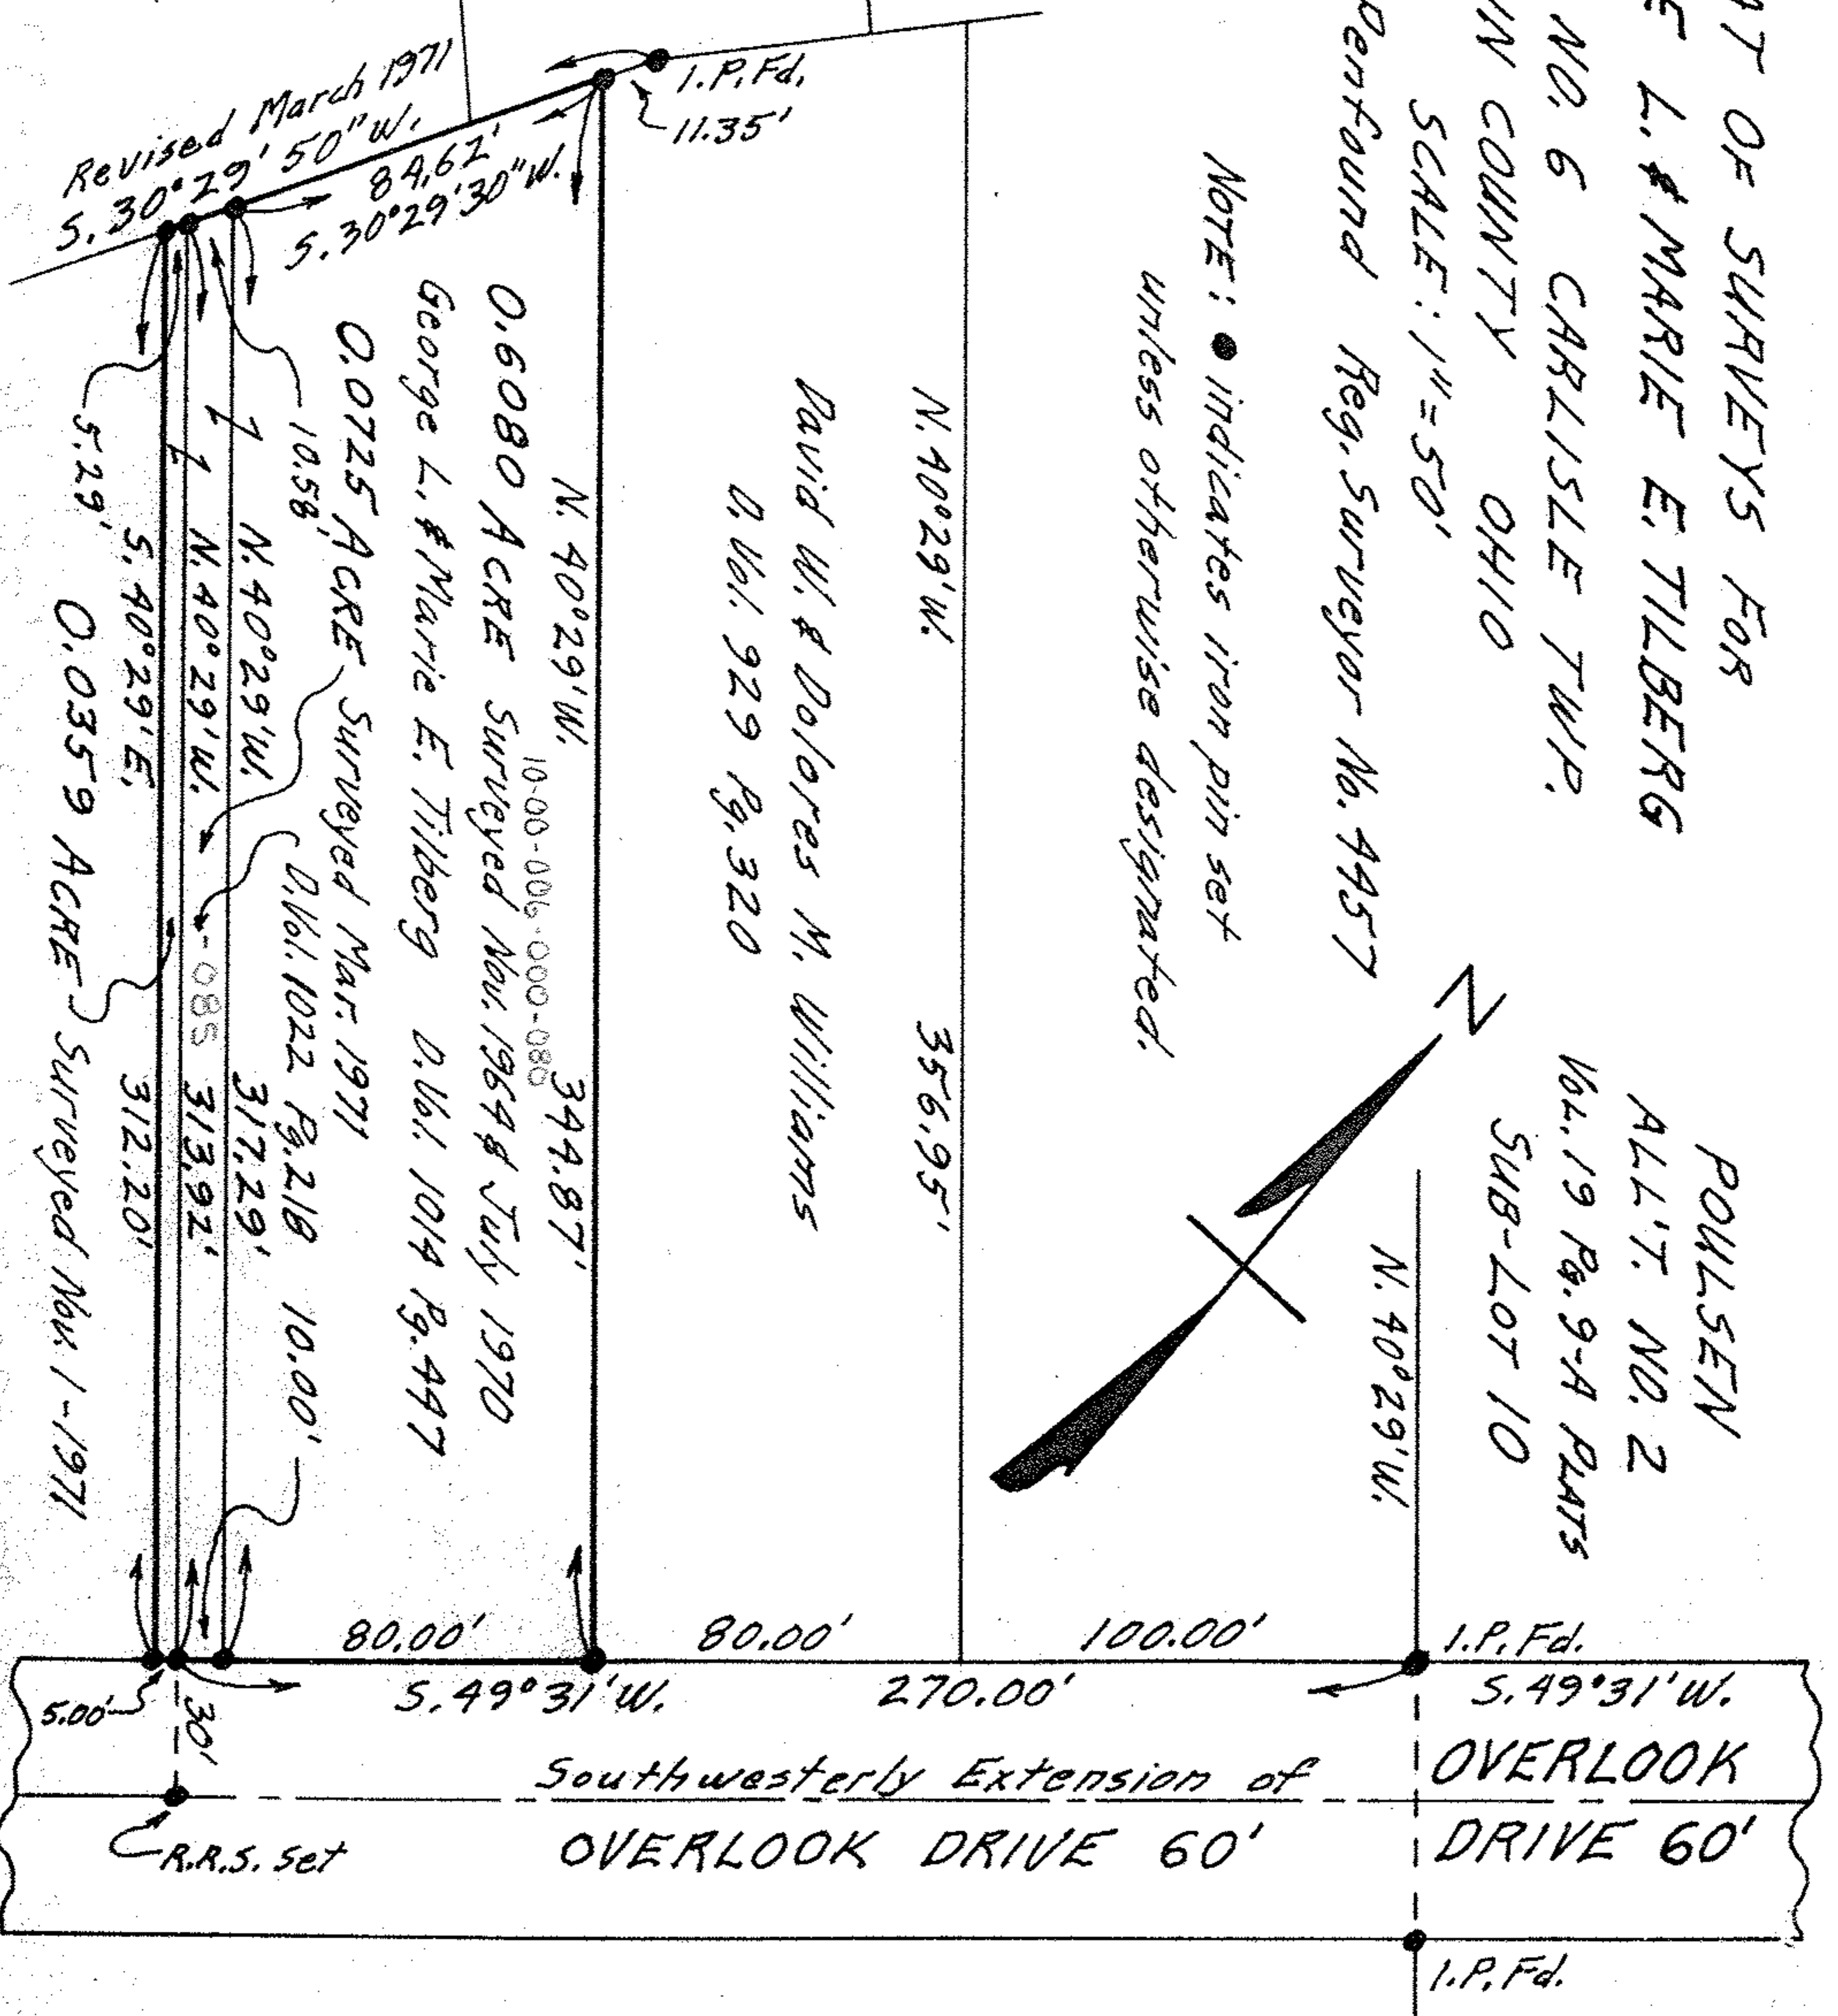 AT OF SURVEYS FOR
E L. & MARIE E. TILBERG
NO. 6 CARLISLE TWP.
IN COUNTY OHIO
SCALE: 1"=50'
Penfound Reg. Surveyor No. 4457
NOTE: ● indicates iron pin set
unless otherwise designated.
POULSEN
ALL'T. NO. 2
VOL. 19 PG. 9-A PLATS
SUB-LOT 10
N. 40°29'W.
N
N. 40°29'W. 356.95'
David W. & Dolores M. Williams
D. Vol. 929 Pg. 320
I.P. Fd.
11.35'
Revised March 1971
S. 30°29'50"W.
84.62'
S. 30°29'30"W.
N. 40°29'W. 344.87'
10-00-006-000-080
0.6080 ACRE Surveyed Nov. 1964 & July 1970
George L. & Marie E. Tilberg D. Vol. 1014 Pg. 447
0.0725 ACRE Surveyed Mar. 1971
D. Vol. 1022 Pg. 218 10.00'
10.58'
N. 40°29'W. 317.29'
N. 40°29'W. -085 313.92'
S. 40°29'E. 312.20'
5.29'
0.0359 ACRE Surveyed Nov. 1-1971
80.00' 80.00' 100.00' I.P. Fd.
5.00' 30' S. 49°31'W. 270.00' S. 49°31'W.
Southwesterly Extension of OVERLOOK
R.R.S. set OVERLOOK DRIVE 60' DRIVE 60'
I.P. Fd.